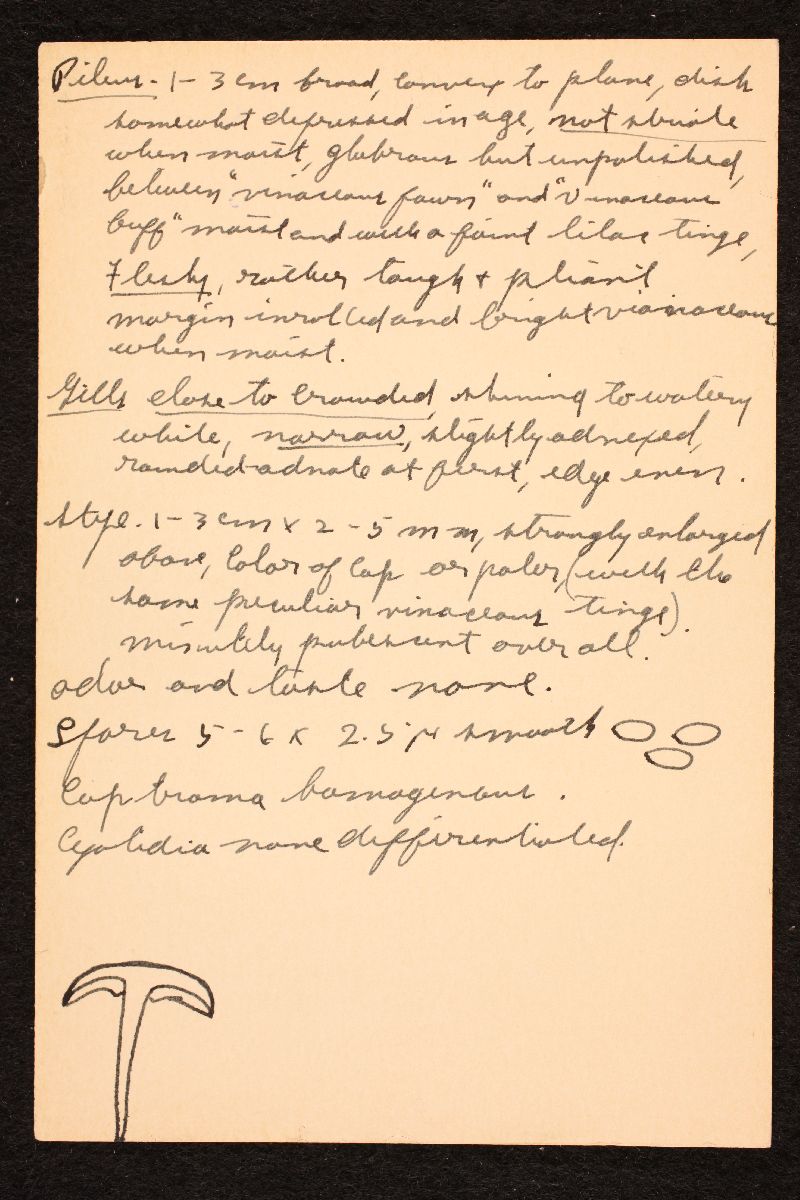 Pileus - 1-3 cm broad, convex to plane, disk
somewhat depressed in age, not striate
when moist, glabrous but unpolished,
between "vinaceous fawn" and "vinaceous
buff" moist and with a faint lilac tinge,
Flesh, rather tough + pliant
margin inrolled and bright vinaceous
when moist.
Gills close to crowded, shining to watery
white, narrow, slightly adnexed,
rounded-adnate at first, edge even.
Stipe. 1-3 cm x 2-5 mm, strongly enlarged
above, color of cap or paler, (with the
same peculiar vinaceous tinge).
minutely pubescent over all.
odor and taste none.
Spores 5-6 x 2.5 μ smooth
Cap trama homogenous.
Cystidia none differentiated.